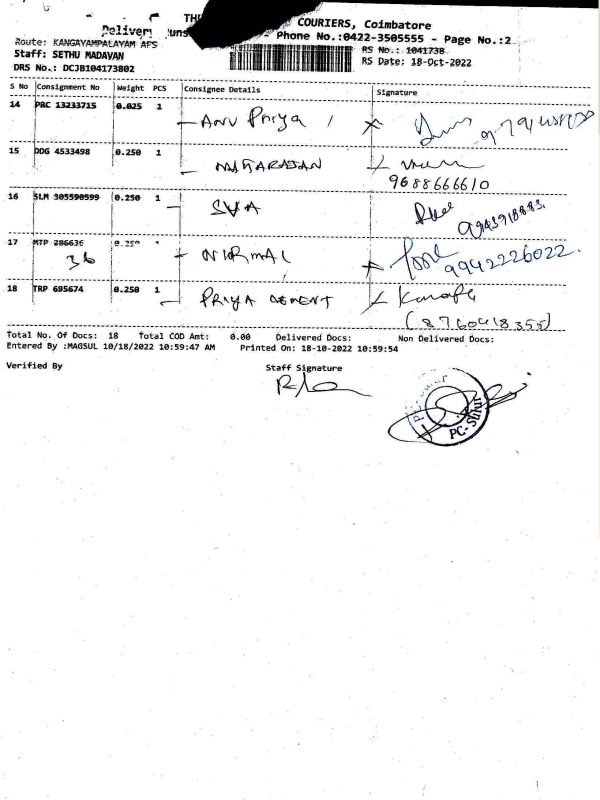 COURIERS, Coimbatore
Delivery
Phone No.:0422-3505555 - Page No.:2
Route: KANGAYAMPALAYAM APS
RS No.: 1041738
Staff: SETHU MADAVAN
RS Date: 18-Oct-2022
DRS No.: DCJB104173802
S No Consignment No Weight PCS Consignee Details Signature
14 PRC 13233715 0.025 1 - ANU Priya
15 DDG 4533498 0.250 1 - MAHARAJAN
9688666610
16 SLM 305590599 0.250 1
17 MTP 286636 0.250 1 - NIRMAL
36
9942226022
18 TRP 695674 0.250 1 - PRIYA CEMENT
(8760418355)
Total No. Of Docs: 18 Total COD Amt: 0.00 Delivered Docs: Non Delivered Docs:
Entered By :MAGSUL 10/18/2022 10:59:47 AM Printed On: 18-10-2022 10:59:54
Verified By Staff Signature
PC-Sulur
PC-Sulur